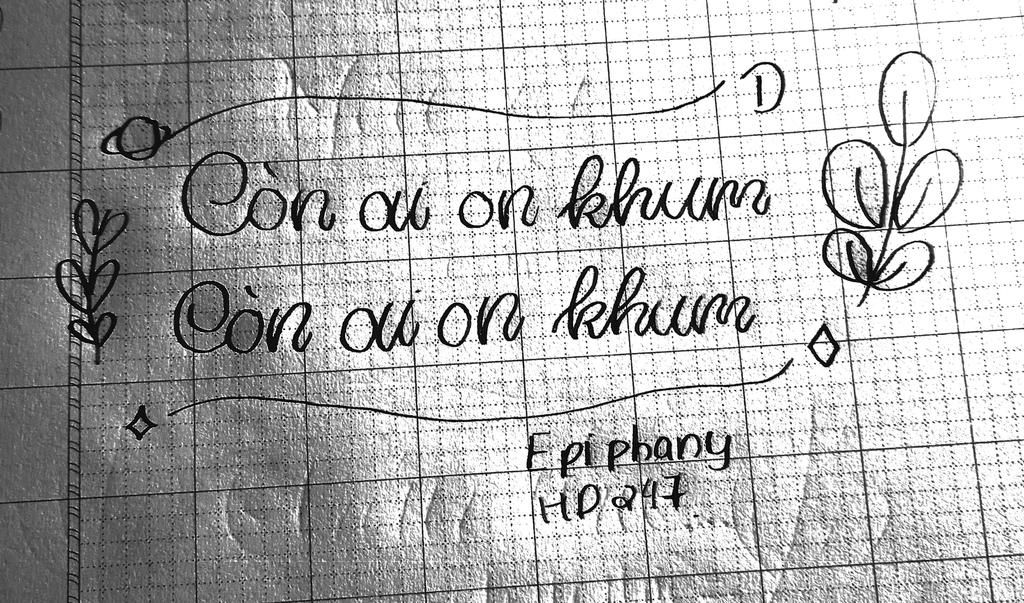 D
Còn ai on khum
Còn ai on khum
Epiphany
HD 247